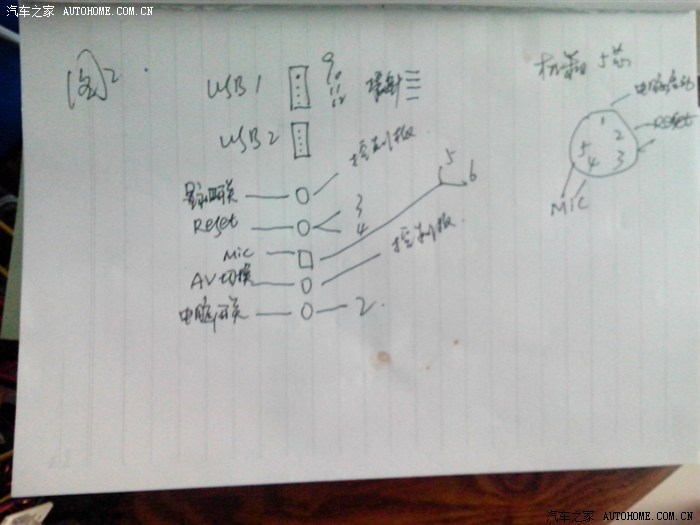 汽车之家 AUTOHOME.COM.CN
图2.
航嘉 5芯
USB1
9
10
11
12
电脑启动
1
2 Reset
5
4 3
MiC
USB2
控制板
5
6
开关
Reset
3
4
Mic
AV切换
控制板
电脑开关
2.
汽车之家 AUTOHOME.COM.CN